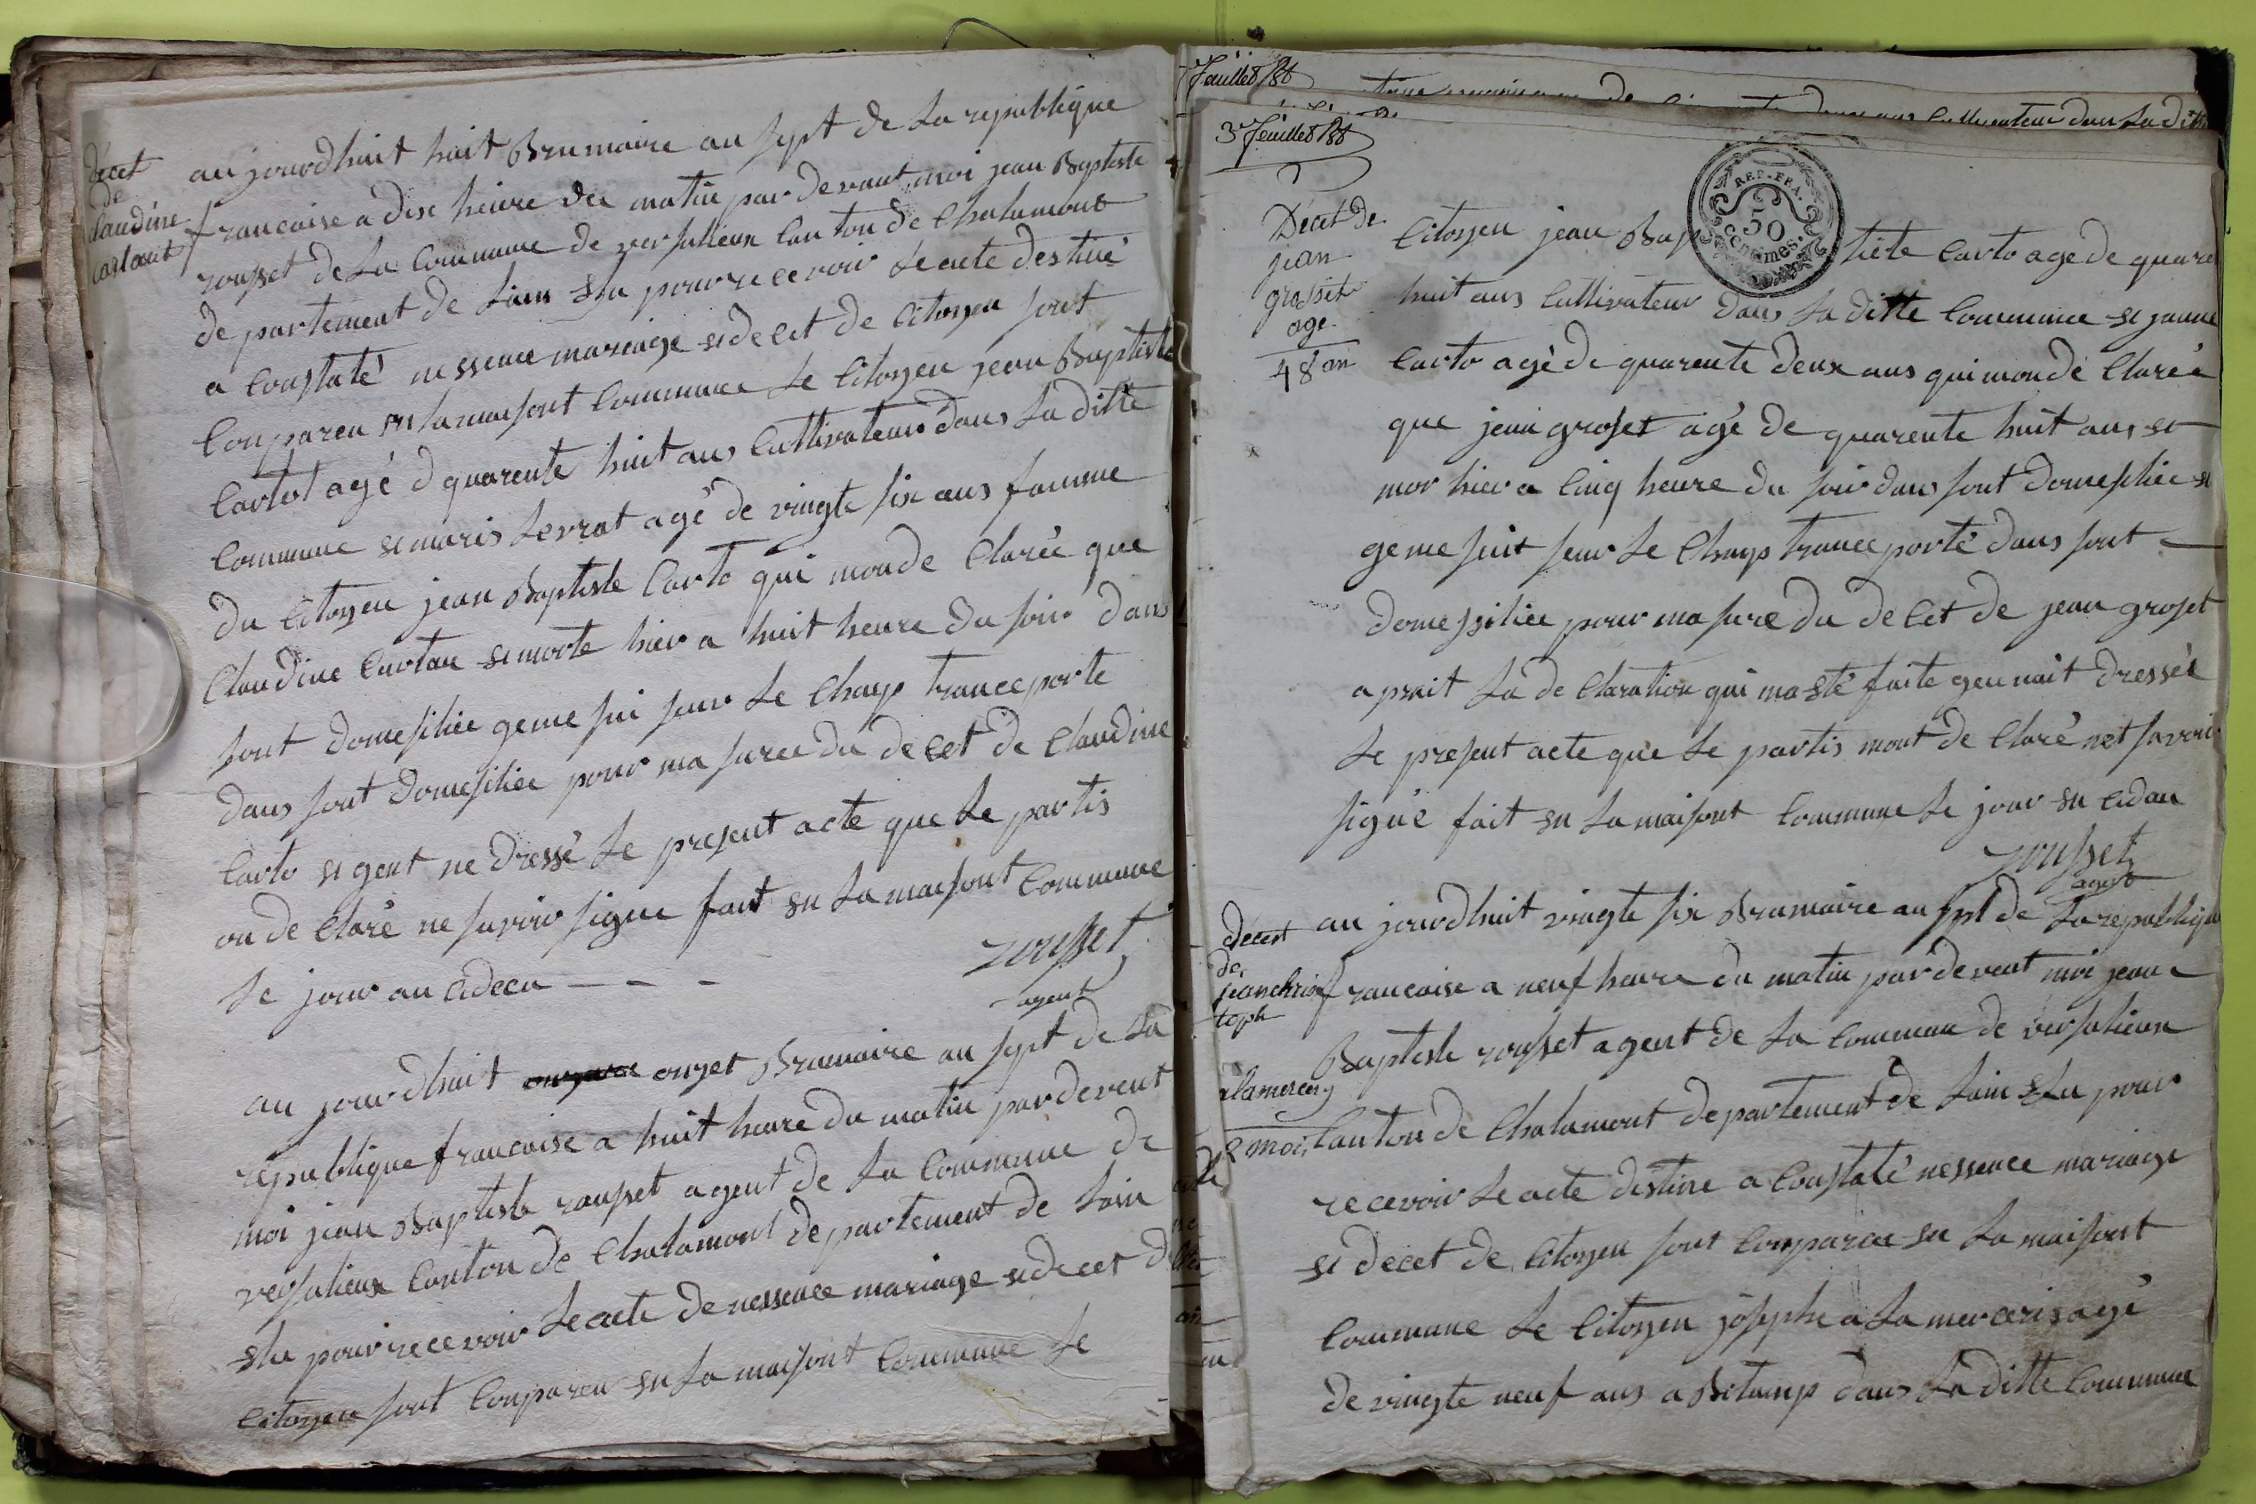 décet
de
claudine
cartaut
au jourdhuit huit Brumaire an sept de La republique
francaise a dix heure du matin par devant moi jean Baptiste
rousset de La Commune de versalieux Canton de Chalamont
de partement de Lain Elu pour recevoir Le acte destiné
a Constaté nessence mariage et decet de Citoyen sont
Conpareu en La maisont Commune Le Citoyen jean Baptiste
Cartot agé d quarente huit ans Cultivateur dans La ditte
Commune et maris Levrat agé de vingte six ans famme
du Citoyen jean Baptiste Carto qui monde Clarée que
Claudine Cartau et morte hier a huit heure du soir dans
sont domesiliée geme sui seur Le Champ tranceporte
dans sont domesiliée pour ma suree du decet de Claudine
Carto et gent ne dressé Le present acte que Le partis
on de Claré ne savoir signe fait en La maisont Commune
Le jour an cideçu - - -
rousset
agent
au jourdhuit onzet Brumaire an sept de La
republique francaise a huit heure du matin par devent
moi jean Baptiste rousset agent de La Commune de
versalieux Canton de Chalamont departement de Lain
Elu pour recevoir Le acte de nessence mariage et decet d
Citoyen sont Conpareu en La maisont Commune Le
feuillet
3e feuillet
REP. FRA.
50
centimes.
Décet de
jean
grosset
age
48 an
Citoyen jean Bap tiste Carto age de quare
huit ans Cultivateur dans La ditte Commune et janne
Carto agé de quarente deux ans qui monde Clarée
que jean groset agé de quarente huit ans et
mor hier a Cinq heure du soir dans sont domesiliée et
geme suit seur Le Champ tranceporté dans sont
domessiliée pour ma sure du decet de jean groset
aprait La de Claration qui ma Eté faite gen nait dressée
Le present acte que Le partis mont de Claré net savoir
signé fait en La maisont Commune Le jour en cidau
rousset
agent
décest
de
jean chris
toph
alamercery
2 mois
au jourdhuit vingte six Brumaire an sept de La republique
francaise a neuf heure du matin par devent moi jean
Baptiste rousset agent de La Commune de versalieux
Canton de Chalamont departement de Lain Elu pour
recevoir Le acte destine a Constaté nessence mariage
et decet de Citoyen sont Conpareu en La maisont
Commune Le Citoyen josephe a La merceris agé
de vingte neuf ans a Bitamp dans La ditte Commune